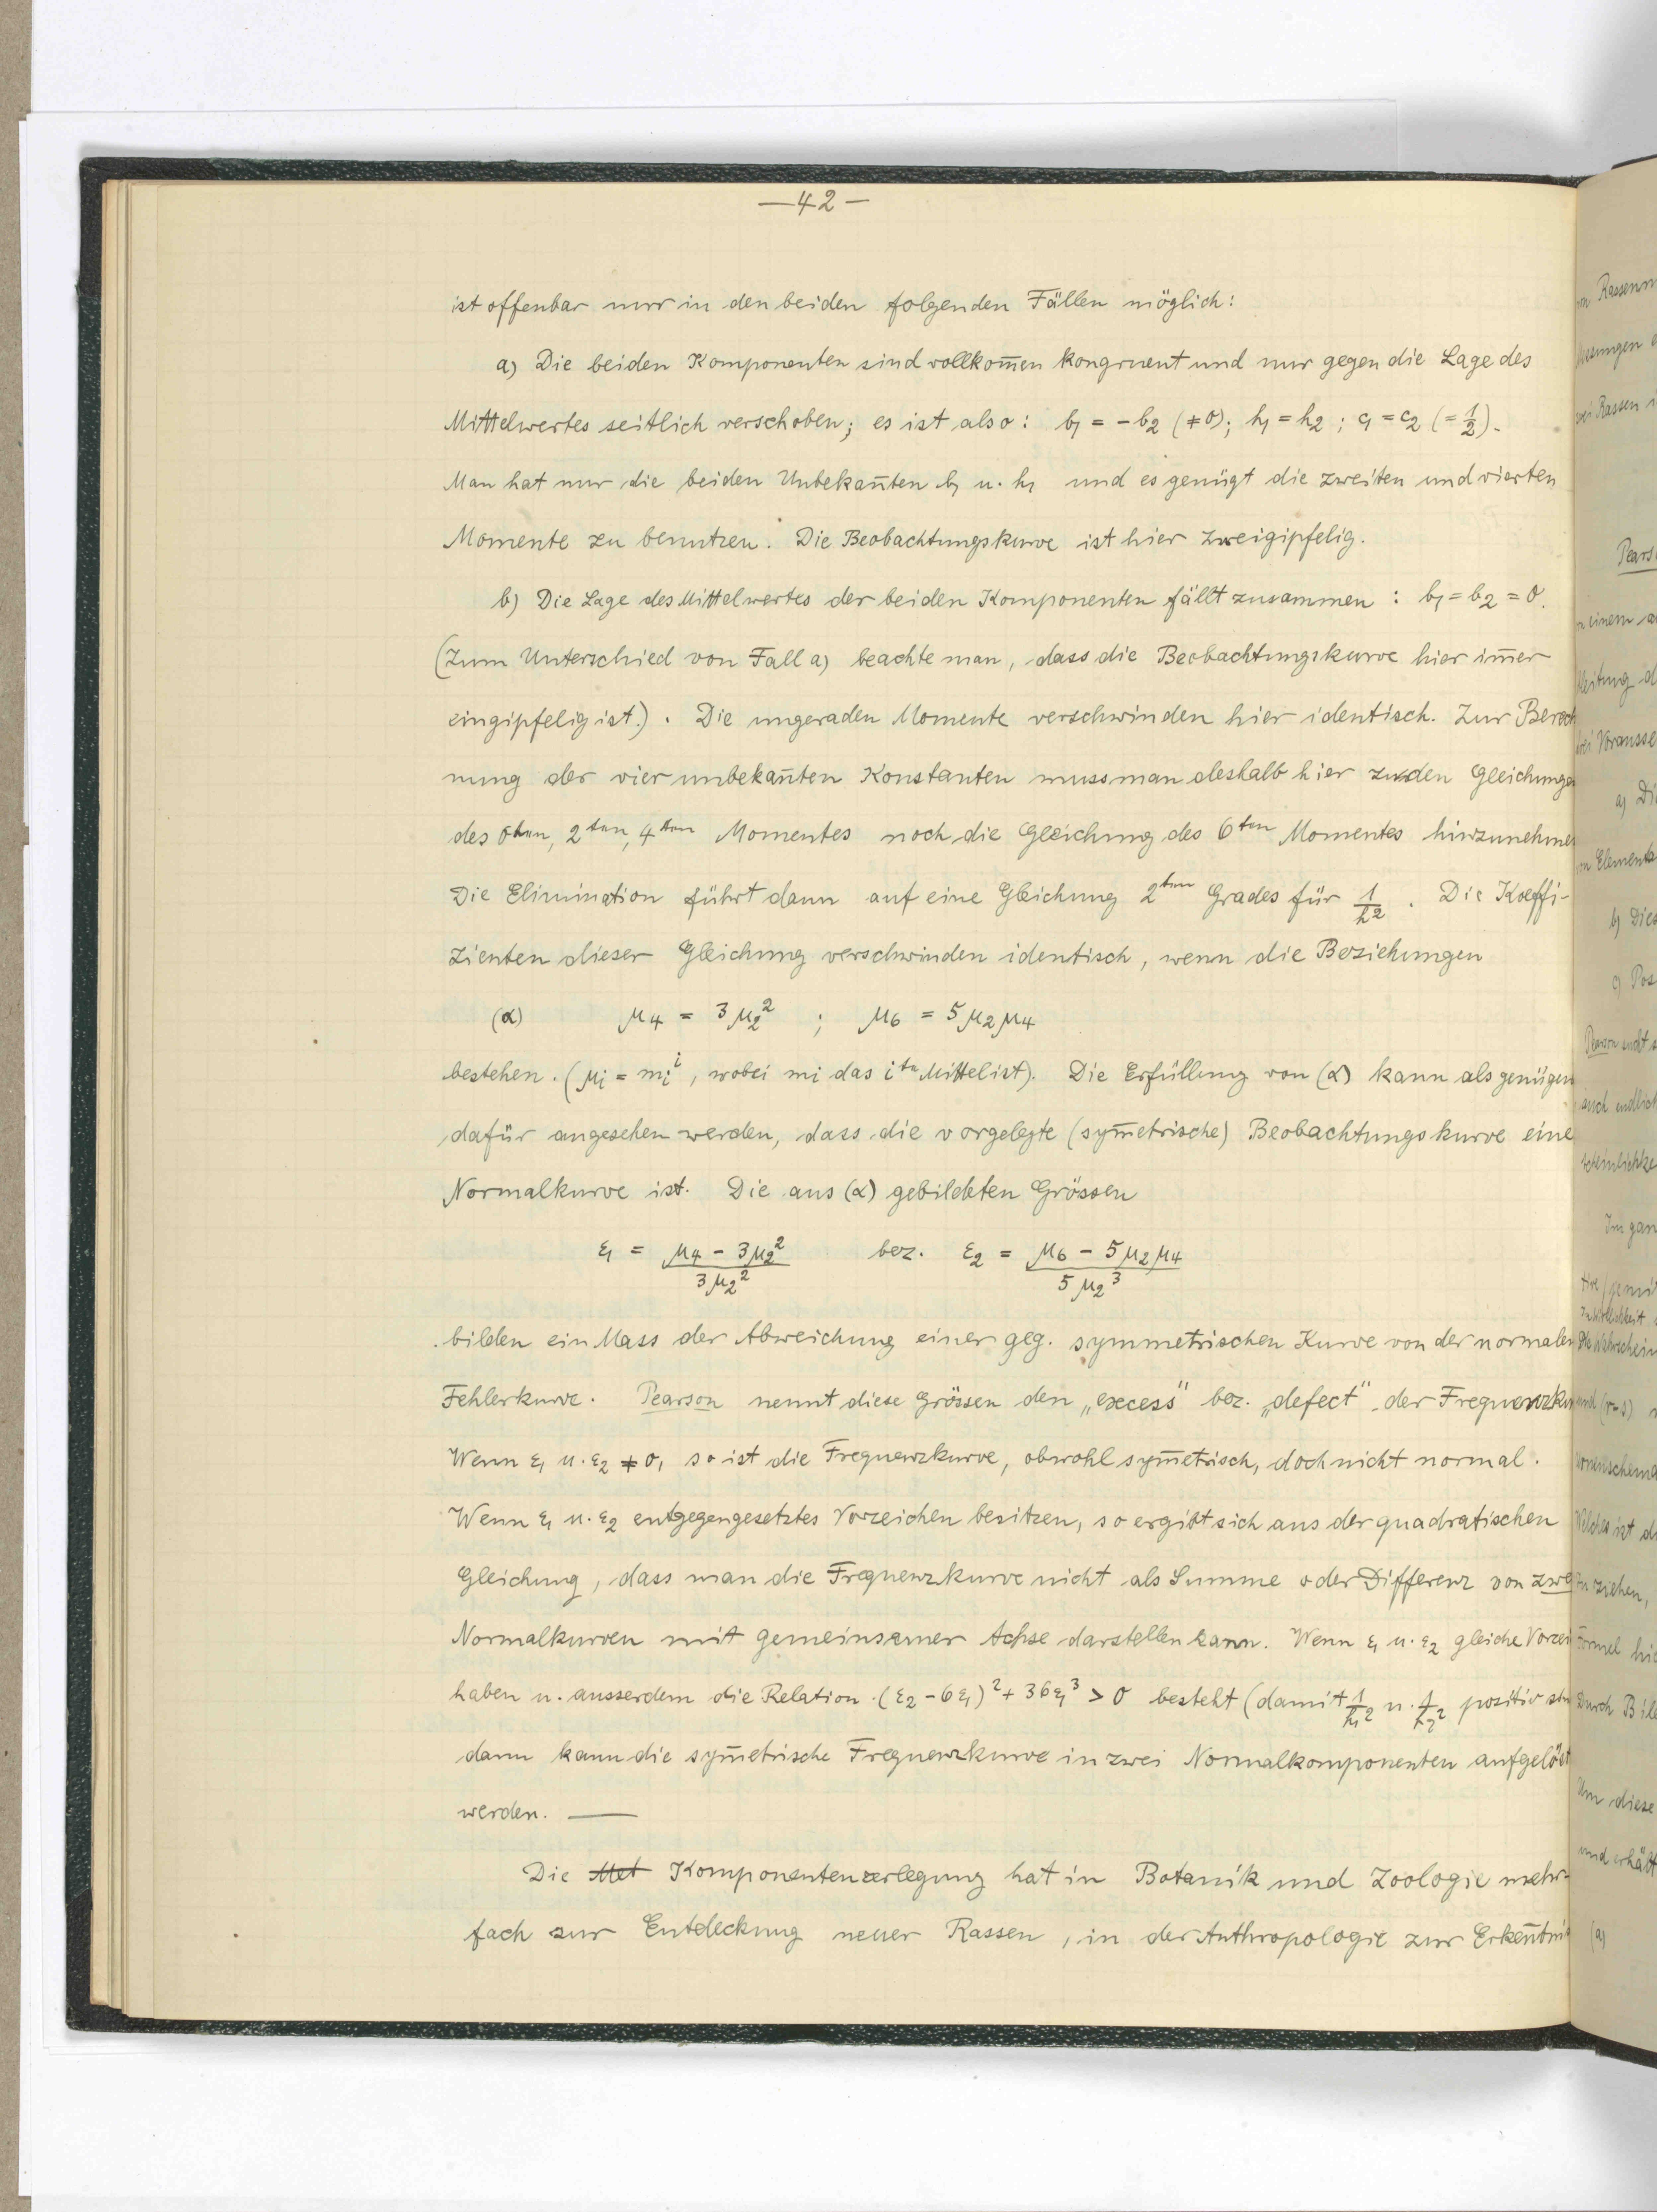 —42—
ist offenbar nur in den beiden folgenden Fällen möglich:
a) Die beiden Komponenten sind vollkom̅en kongruent und nur gegen die Lage des
Mittelwertes seitlich verschoben; es ist also: b₁ = −b₂ (≠0); h₁ = h₂ ; c₁ = c₂ (= 1/2).
Man hat nur die beiden Unbekan̅ten b₁ u. h₁ und es genügt die zweiten und vierten
Momente zu benutzen. Die Beobachtungskurve ist hier zweigipfelig.
b) Die Lage des Mittelwertes der beiden Komponenten fällt zusammen : b₁ = b₂ = 0.
(Zum Unterschied von Fall a) beachte man, dass die Beobachtungskurve hier im̅er
eingipfelig ist.). Die ungeraden Momente verschwinden hier identisch. Zur Berech
nung der vier unbekan̅ten Konstanten muss man deshalb hier zu den Gleichungen
des 0ten, 2ten, 4ten Momentes noch die Gleichung des 6ten Momentes hinzunehmen
Die Elimination führt dann auf eine Gleichung 2ten Grades für 1/h². Die Koeffi-
zienten dieser Gleichung verschwinden identisch, wenn die Beziehungen
(α) μ₄ = 3μ₂² ; μ₆ = 5μ₂μ₄
bestehen. (μᵢ = mᵢⁱ, wobei mᵢ das ite Mittel ist). Die Erfüllung von (α) kann als genügen
dafür angesehen werden, dass die vorgelegte (sym̅etrische) Beobachtungskurve eine
Normalkurve ist. Die aus (α) gebildeten Grössen
ε₁ = (μ₄ − 3μ₂²)/(3μ₂²) bez. ε₂ = (μ₆ − 5μ₂μ₄)/(5μ₂³)
bilden ein Mass der Abweichung einer geg. symmetrischen Kurve von der normalen
Fehlerkurve. Pearson nennt diese Grössen den „excess" bez. „defect" der Frequenzku
Wenn ε₁ u. ε₂ ≠ 0, so ist die Frequenzkurve, obwohl sym̅etrisch, doch nicht normal.
Wenn ε₁ u. ε₂ entgegengesetztes Vorzeichen besitzen, so ergibt sich aus der quadratischen
Gleichung, dass man die Frequenzkurve nicht als Summe oder Differenz von zwe
Normalkurven mit gemeinsamer Achse darstellen kann. Wenn ε₁ u. ε₂ gleiche Vorzei
haben u. ausserdem die Relation (ε₂ − 6ε₁)² + 36ε₁³ > 0 besteht (damit 1/h₁² u. 1/h₂² positiv sin
dann kann die sym̅etrische Frequenzkurve in zwei Normalkomponenten aufgelöst
werden. —
Die Met Komponentenzerlegung hat in Botanik und Zoologie mehr-
fach zur Entdeckung neuer Rassen, in der Anthropologie zur Erken̅tnis
Rassenm
zwei Rassen
Pears
einem
Vorausse
a) Di
Elementa
b) Dies
c) Pos
Pearson
auch endlich
Im gan
Welches ist d
zu ziehen,
Formel
Durch Bil
Um diese
und erhält
(a)